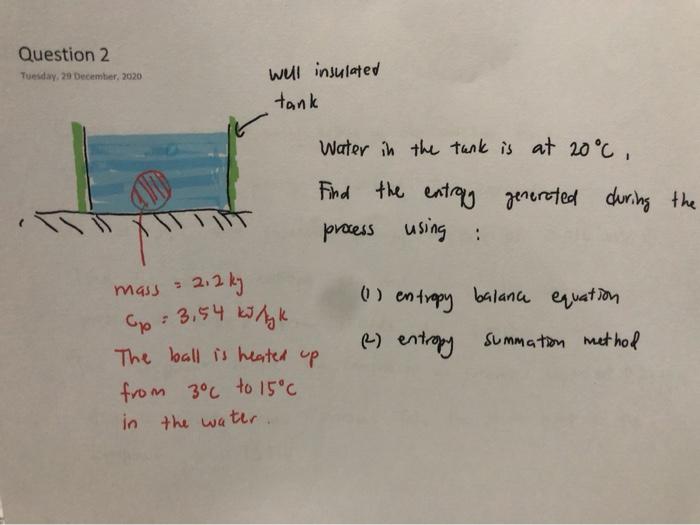 Question 2
Tuesday, 29 December, 2020
well insulated
tank
Water in the tank is at 20°C,
Find the entropy generated during the
process using :
(1) entropy balance equation
(2) entropy summation method
mass = 2.2 kg
Cp = 3.54 kJ/kg K
The ball is heated up
from 3°C to 15°C
in the water.